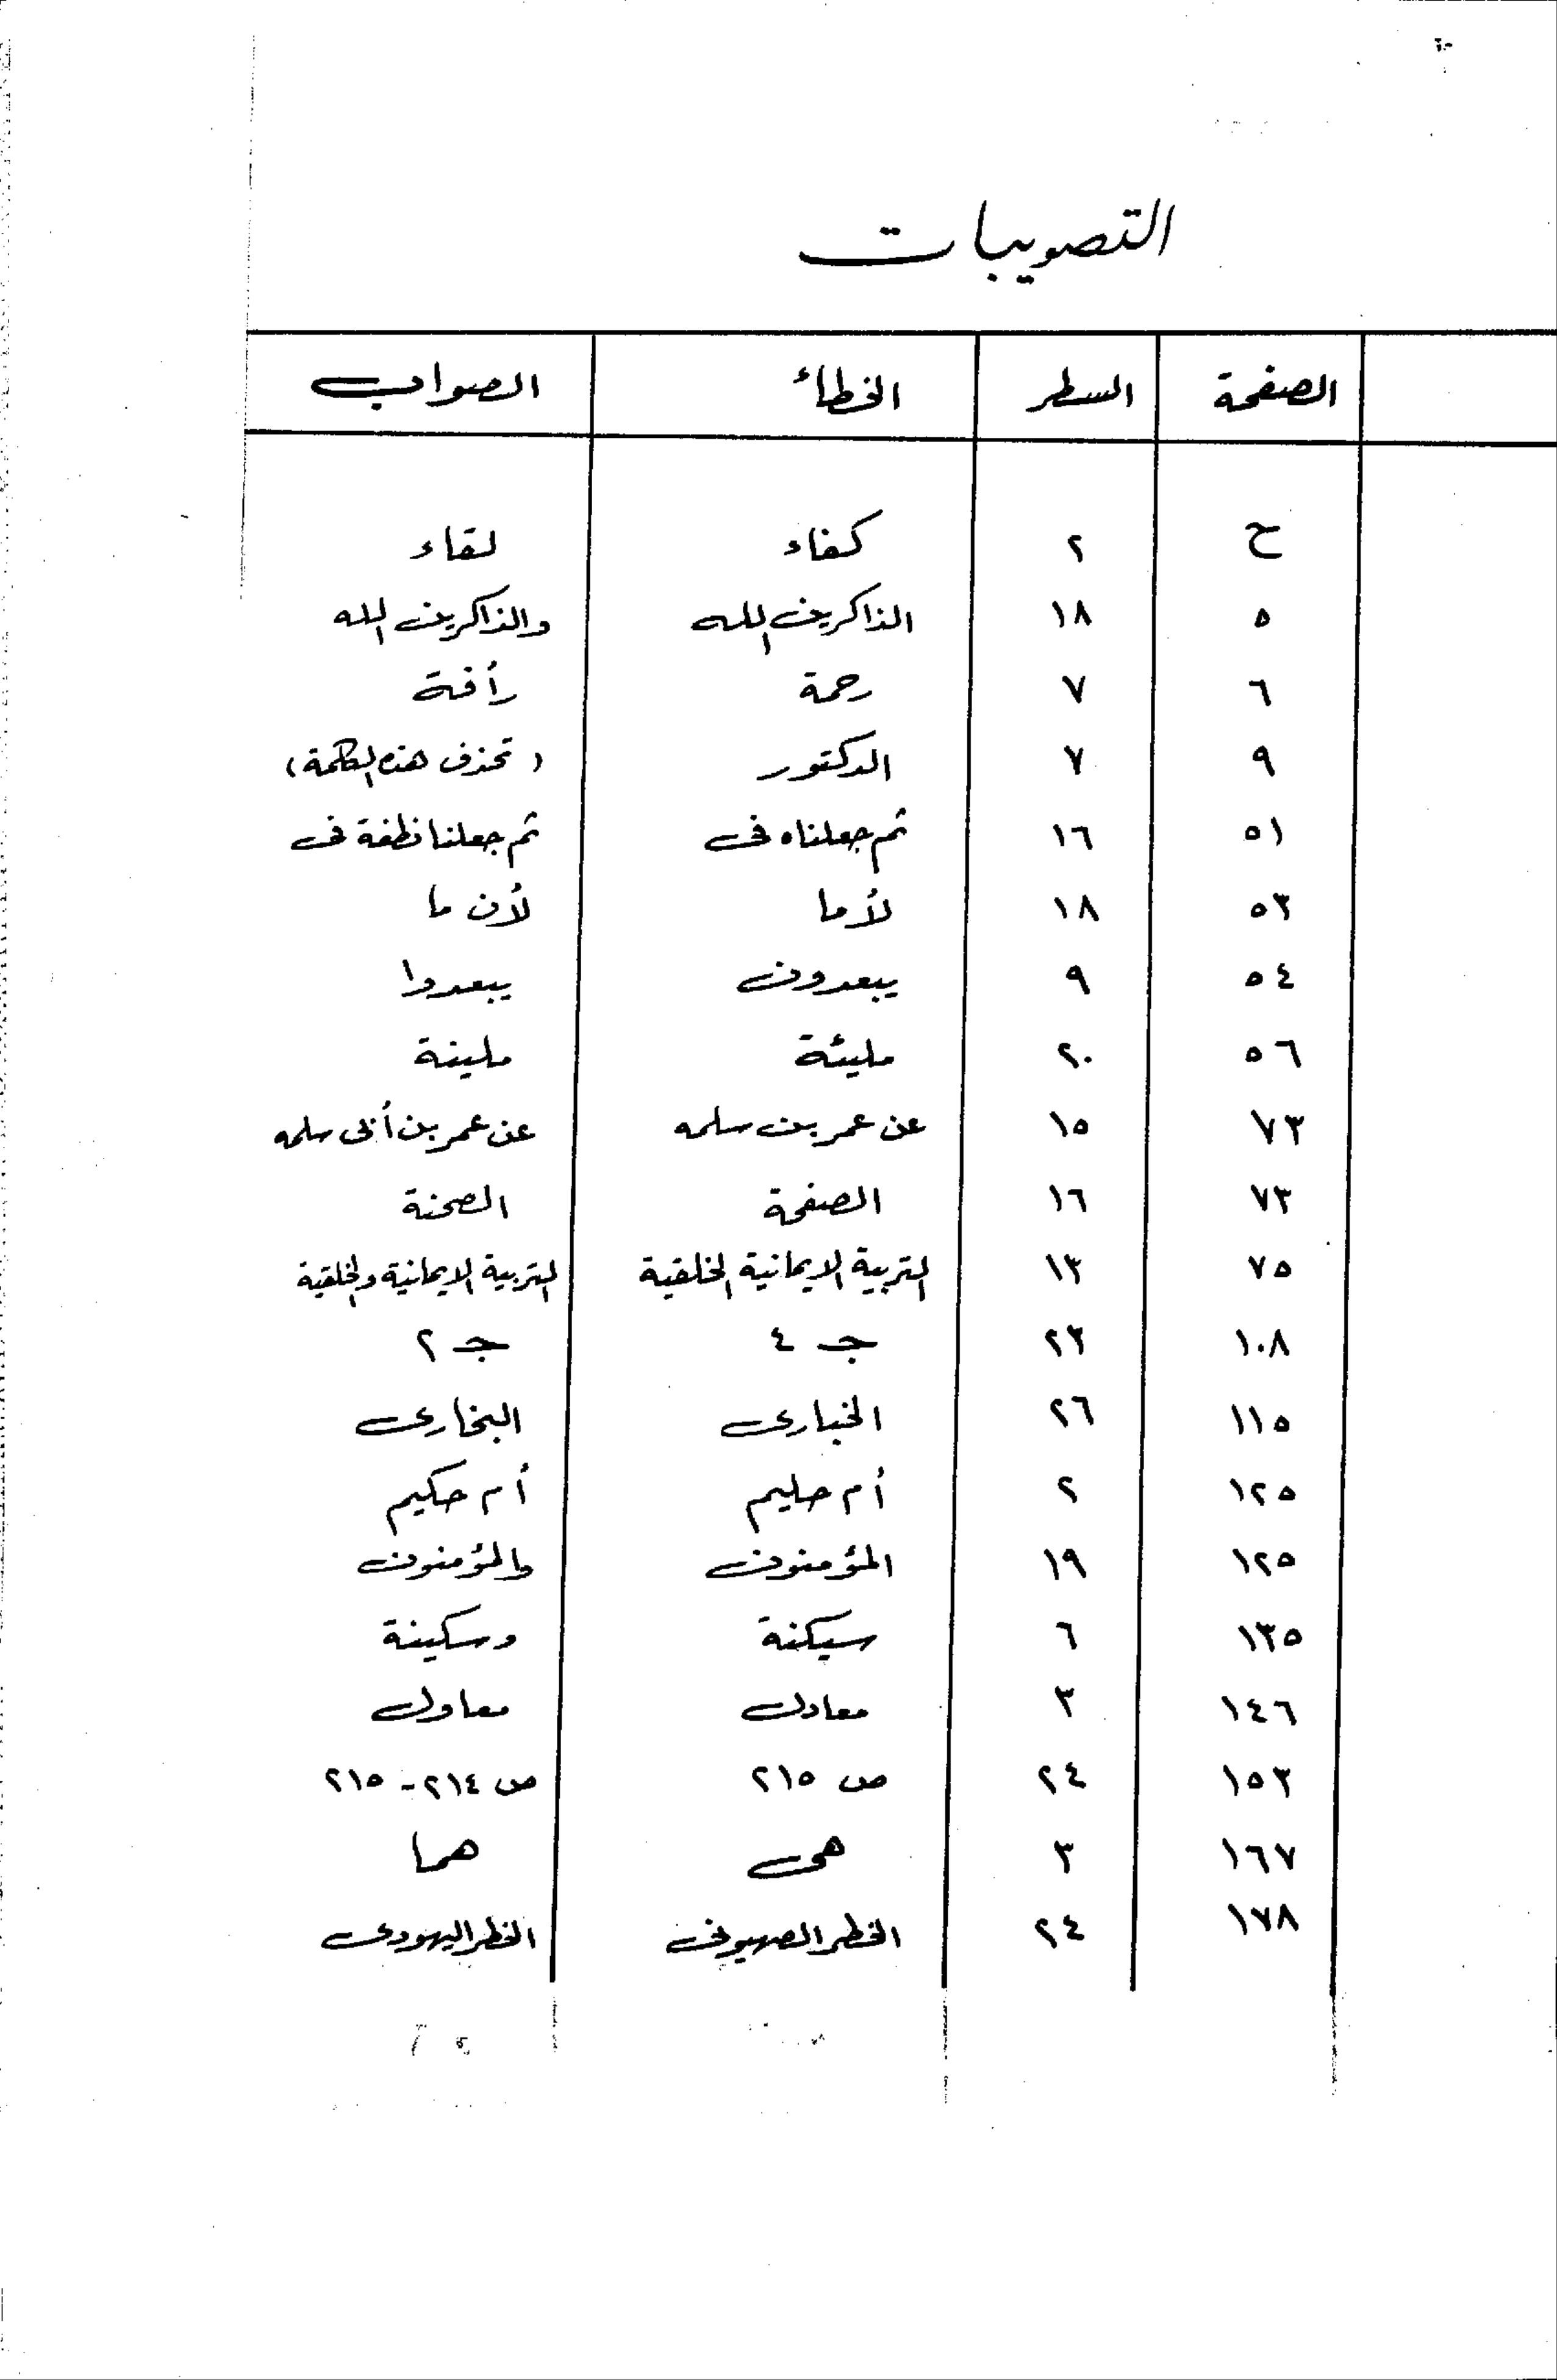 التصويبات
الصفحة السطر الخطاء الصواب
ح ٢ كفاء لقاء
٥ ١٨ الذاكرين الله والذاكرين الله
٦ ٧ رحمة رأفة
٩ ٧ الدكتور (تحذف هذه الكلمة)
٥١ ١٦ ثم جعلناه فى ثم جعلنا نطفة فى
٥٣ ١٨ لأما لأن ما
٥٤ ٩ يبعدون يبعدوا
٥٦ ٢٠ مليئة ملينة
٧٣ ١٥ عن عمر بن سلمه عن عمر بن أبى سلمه
٧٣ ١٦ الصفحة الصحنة
٧٥ ١٣ التربية الايمانية الخلقية التربية الايمانية والخلقية
١٠٨ ٢٣ جـ ٤ جـ ٢
١١٥ ٢٦ الخبارى البخارى
١٢٥ ٢ أم حليم أم حكيم
١٢٥ ١٩ المؤمنون والمؤمنون
١٣٥ ٦ سيكنة وسكينة
١٤٦ ٣ معادل معاول
١٥٣ ٢٤ ص ٢١٥ ص ٢١٤ - ٢١٥
١٦٧ ٣ هى هما
١٧٨ ٢٤ الخطر الصهيونى الخطر اليهودى